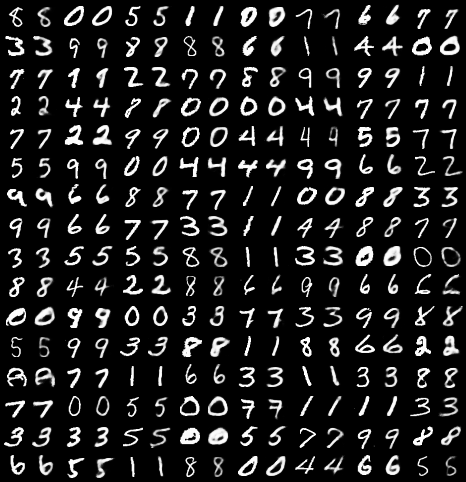 8 8 0 0 5 5 1 1 0 0 7 7 6 6 7 7
3 3 9 9 8 8 8 8 6 6 1 1 4 4 0 0
7 7 1 1 2 2 7 7 8 8 9 9 9 9 1 1
2 2 4 4 8 8 0 0 0 0 4 4 7 7 7 7
7 7 2 2 9 9 0 0 4 4 4 9 5 5 7 7
5 5 9 9 0 0 4 4 4 4 9 9 6 6 2 2
9 9 6 6 8 8 7 7 1 1 0 0 8 8 3 3
9 9 6 6 7 7 3 3 1 1 4 4 8 8 7 7
3 3 5 5 5 5 8 8 1 1 3 3 0 0 0 0
8 8 4 4 2 2 8 8 6 6 9 9 6 6 6 6
0 0 9 9 0 0 3 3 7 7 3 3 9 9 8 8
5 5 9 9 3 3 8 8 1 1 8 8 6 6 2 2
7 7 1 1 6 6 3 3 1 1 3 3 8 8
7 7 0 0 5 5 0 0 7 7 1 1 1 1 3 3
3 3 3 3 5 5 0 0 5 5 7 7 9 9 8 8
6 6 5 5 1 1 8 8 0 0 4 4 6 6 5 5